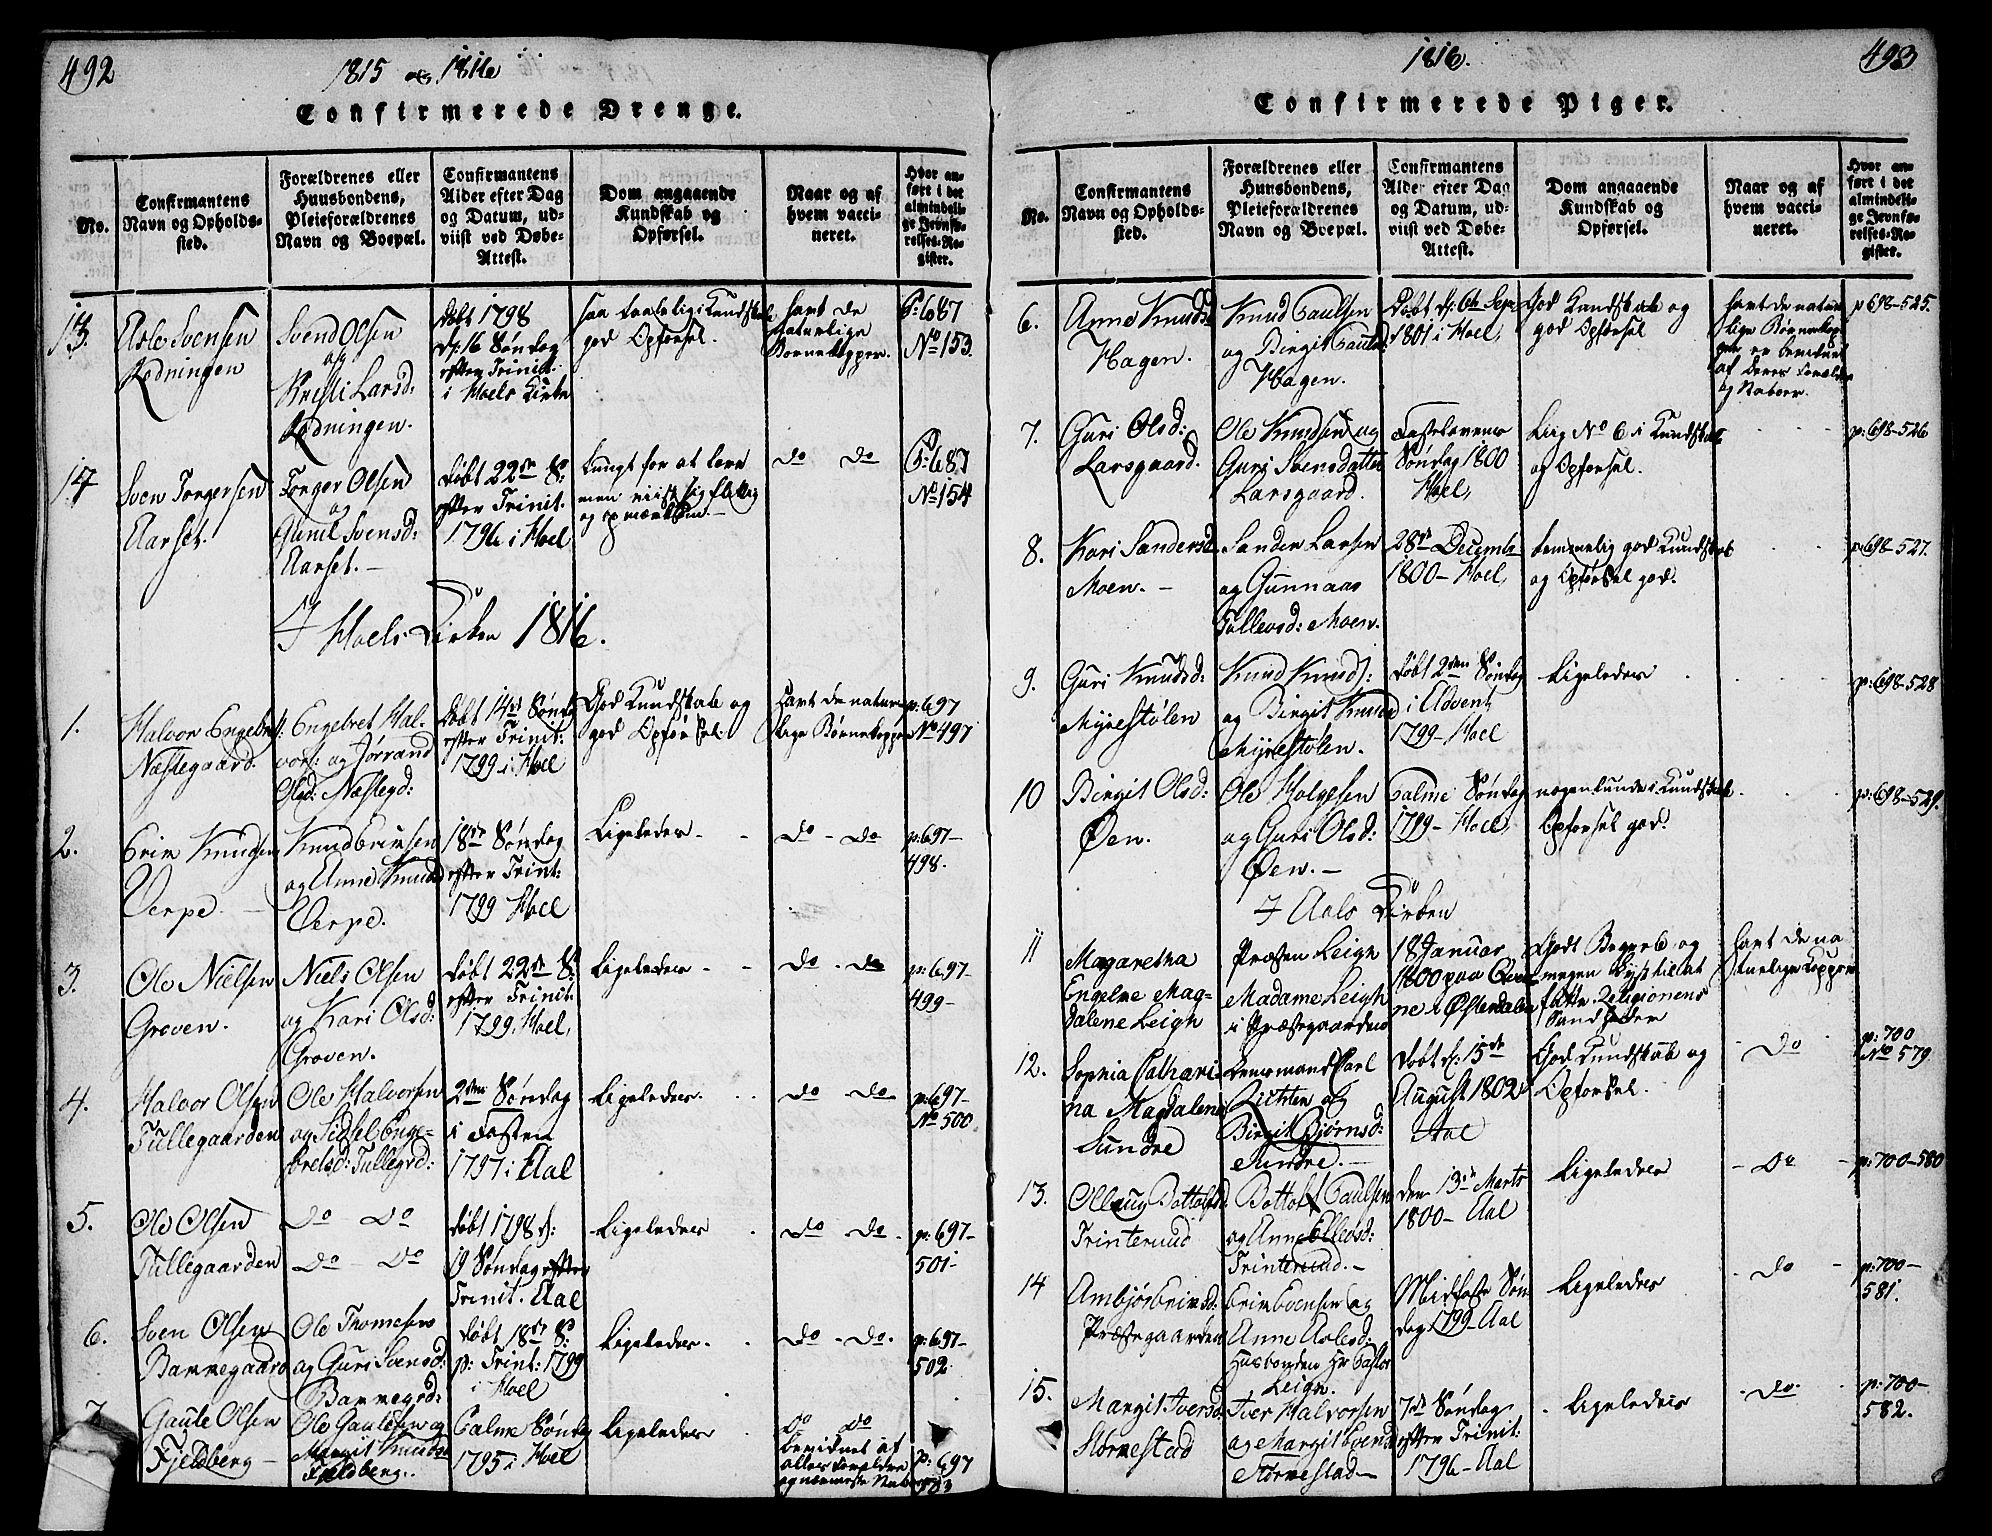 492
1815 og 1816
Confirmerede Drenge.
No.
Confirmantens
Navn og Opholds-
sted.
Forældrenes eller
Huusbondens,
Pleieforældrenes
Navn og Boepæl.
Confirmantens
Alder efter Dag
og Datum, ud-
viist ved Døbe-
Attest.
Dom angaaende
Kundskab og
Opførsel.
Naar og af
hvem vacci-
neret.
Hvor an-
ført i det
almindeli-
ge Jevnfø-
relses-Re-
gister.
13.
Asle Svensen
Rodningen
Svend Olsen
og
Kristi Larsd:
Rodningen.
døbt 1798
d: 16 Søndag
efter Trinit:
i Hoels Kirke
god Opførsel.
havt de
naturlige
Børnekopper.
P: 687
No 153.
14
Sven Torgersen
Aarset.
Torger Olsen
og
Gunil Svensd:
Aarset. -
døbt 22de S:
efter Trinit.
1796 i Hoel
tungt for at lære
men viist sig flittig
og opmærksom. -
Do Do
P: 687
No 154
I Hoels Kirke 1816.
1.
Halvor Engebret:
Næslegaard.
Engebret Hal-
vors: og Jørrand
Olsd: Næslegd:
døbt 14de Sønd
efter Trinit:
1799 i Hoel
God Kundskab og
god Opførsel.
havt de natur-
lige Børnekopper
p: 697
No 497
2.
Erik Knudsen
Verpe. -
Knud Eriksen
og Anne Knudsd
Verpe.
18de Søndag
efter Trinit:
1799 Hoel
Ligeledes - -
Do - Do
p: 697-
498.
3.
Ole Nielsen
Groven.
Niels Olsen
og Kari Olsd:
Groven.
døbt 22de S:
efter Trinit:
1799. Hoel,
Ligeledes - -
Do - Do
p: 697-
499-
4.
Halvor Olsen
Tullegaarden
Ole Halvorsen
og Sidsel Enge-
bretsd: Tullegrd:
2den Søndag
i Fasten
1797 i Aal
Ligeledes.
Do Do
p: 697-
No 500
5.
Ole Olsen
Tullegaarden
Do - Do
Do - Do
døbt 1798 d:
19 Søndag efter
Trinit. Aal
Ligeledes
Do - Do.
p: 697-
501-
6.
Sven Olsen
Bammegaard
Ole Thomesen
og Guri Svensd:
Bammegrd:
døbt 18de S:
p: Trint: 1799
i Hoel
Ligeledes.
Do - Do.
p: 697-
502
7.
Gaute Olsen
Fjeldberg -
Ole Gautesen og
Margit Knudsd
Fjeldberg.
Palme Søndag
1795 i Hoel
Ligeledes
Do Do
bevidnet af
alles Forældre
og nærmeste Nabo
P: 697
503
1816.
493
Confirmerede Piger.
No.
Confirmantens
Navn og Opholds-
sted.
Forældrenes eller
Huusbondens,
Pleieforældrenes
Navn og Boepæl.
Confirmantens
Alder efter Dag
og Datum, ud-
viist ved Døbe-
Attest.
Dom angaaende
Kundskab og
Opførsel.
Naar og af
hvem vacci-
neret.
Hvor an-
ført i det
almindeli-
ge Jevnfø-
relses-Re-
gister.
6.
Anne Knudsd
Hagen.
Knud Paulsen
og Birgit Paulsd
Hagen.
Døbt d: 6te Sep
1801 i Hoel,
God Kundskab og
god Opførsel
havt de natur-
lige Børnekop-
per er bevidnet
af deres Forældre
og Naboer.
p 698-525.
7.
Guri Olsd:
Larsgaard.
Ole Knudsen og
Guri Svensdatter
Larsgaard.
Fastelavens
Søndag 1800
Hoel,
Liig No 6 i Kundskab
og Opførsel.
p: 698-526
8.
Kari Sandersd
Moen. -
Sander Larsen
og Gunnaas
Tollevsd: Moen.
28de Decemb
1800 - Hoel,
temmelig god Kundskab
og Opførsel god.
p: 698-527.
9.
Guri Knudsd:
Myrestølen
Knud Knuds:
og Birgit Knud
Myrestølen.
døbt 2den Søndag
i Advent
1799 - Hoel
Ligeledes
p: 698-528
10
Birgit Olsd:
Øen.
Ole Holgesen
og Guri Olsd:
Øen. -
Palme Søndag
1799 - Hoel,
nogenlunde i Kundskab
Opførsel god.
p: 698-529.
I Aals Kirke
11
Magaretha
Engelne Mag-
dalene Leigh
Præsten Leigh
Madame Leigh
i Præstegaarden
18 Januar
1800 paa
i Østerdalen
Godt Begreb og
megen Lyst til at
fatte Religionens
Sandheder
havt de na
turlige Kopper
12.
Sophia Cathari-
na Magdalena
Sundre
Lensmand Carl
og
Birgit Bjørnsd:
Sundre. -
døbt d: 15de
August 1802
Aal
God Kundskab og
Opførsel.
- Do -
p: 700
No 579.
13.
Trinterud
Bottolf Paulsen
og Anne Ellevsd:
Trinterud. -
den 13de Marts
1800 - Aal
Ligeledes
- Do -
p: 700-580
14
Ambjør Eriksd:
Præstegaarden
Erik Evensen og
Anne Aslesd:
Husbonden Hr Pastor
Leigh.
Midfaste Søn
dag 1799 - Aal
Ligeledes
- Do -
p: 700-
581.
15.
Margit Iversd:
Størnestad
Iver Halvorsen
og Margit Svend
Størnestad -
7de Søndag
efter Trinit:
1796 - Aal
Ligeledes
- Do.
p: 700-
582.